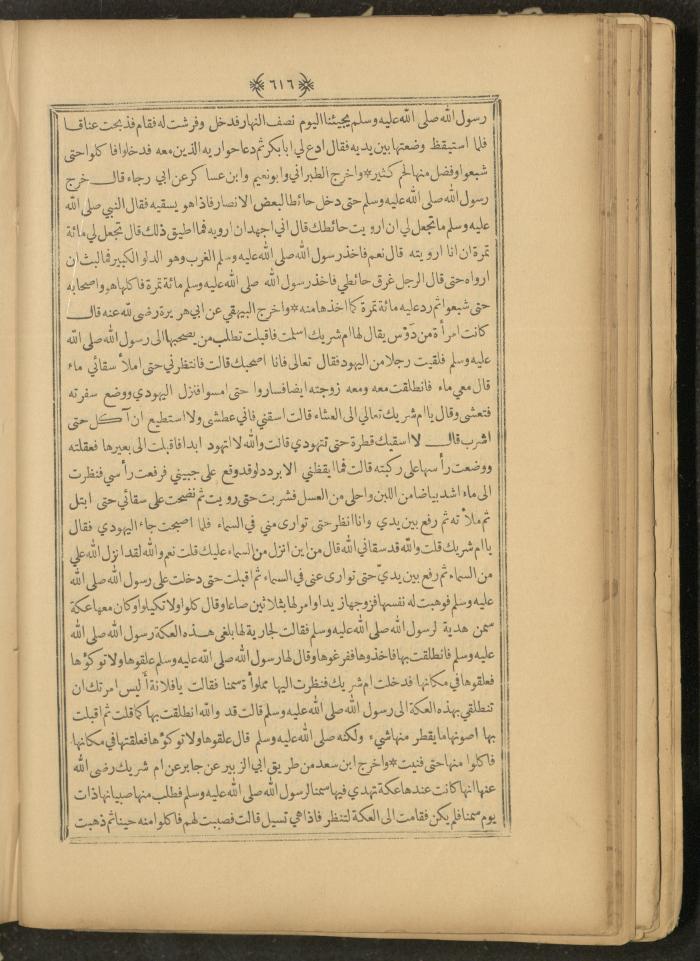 ٦١٦
رسول الله صلى الله عليه وسلم يجيئنا اليوم نصف النهار فدخل وفرشت له فقام فذبحت عناقا
فلما استيقظ وضعتها بين يديه فقال ادع لي ابا بكر ثم دعا حواريه الذين معه فدخلوا فاكلوا حتى
شبعوا وفضل منها لحم كثير * واخرج الطبراني وابو نعيم وابن عساكر عن ابي رجاء قال خرج
رسول الله صلى الله عليه وسلم حتى دخل حائطا لبعض الانصار فاذا هو يسقيه فقال النبي صلى الله
عليه وسلم ما تجعل لي ان ارويت حائطك قال اني اجهد ان ارويه فما اطيق ذلك قال تجعل لي مائة
تمرة ان انا ارويته قال نعم فاخذ رسول الله صلى الله عليه وسلم الغرب وهو الدلو الكبير فما لبث ان
ارواه حتى قال الرجل غرق حائطي فاخذ رسول الله صلى الله عليه وسلم مائة تمرة فاكلها هو واصحابه
حتى شبعوا ثم رد عليه مائة تمرة كما اخذها منه * واخرج البيهقي عن ابي هريرة رضى لله عنه قال
كانت امرأة من دَوْس يقال لها ام شريك اسلمت فاقبلت تطلب من يصحبها الى رسول الله صلى الله
عليه وسلم فلقيت رجلا من اليهود فقال تعالى فانا اصحبك قالت فانتظرني حتى املأ سقائي ماء
قال معي ماء فانطلقت معه ومعه زوجته ايضا فساروا حتى امسوا فنزل اليهودي ووضع سفرته
فتعشى وقال يا ام شريك تعالي الى العشاء قالت اسقني فاني عطشى ولا استطيع ان آكل حتى
اشرب قال لا اسقيك قطرة حتى تتهودي قالت والله لا اتهود ابدا فاقبلت الى بعيرها فعقلته
ووضعت رأسها على ركبته قالت فما ايقظني الا برد دلو قد وقع على جبيني فرفعت رأسي فنظرت
الى ماء اشد بياضا من اللبن واحلى من العسل فشربت حتى رويت ثم نضحت على سقائي حتى ابتل
ثم ملأته ثم رفع بين يدي وانا انظر حتى توارى مني في السماء فلما اصبحت جاء اليهودي فقال
يا ام شريك قلت والله قد سقاني الله قال من اين انزل من السماء عليك قلت نعم والله لقد انزل الله علي
من السماء ثم رفع بين يديّ حتى توارى عنى في السماء ثم اقبلت حتى دخلت على رسول الله صلى الله
عليه وسلم فوهبت له نفسها فزوجها زيدا وامر لها بثلاثين صاعا وقال كلوا ولا تكيلوا وكان معها عكة
سمن هدية لرسول الله صلى الله عليه وسلم فقالت لجارية لها بلغى هذه العكة رسول الله صلى الله
عليه وسلم فانطلقت بها فاخذوها ففرغوها وقال لها رسول الله صلى الله عليه وسلم علقوها ولا توكؤها
فعلقوها في مكانها فدخلت ام شريك فنظرت اليها مملوأة سمنا فقالت يا فلانة أليس امرتك ان
تنطلقي بهذه العكة الى رسول الله صلى الله عليه وسلم قالت قد والله انطلقت بها كما قلت ثم اقبلت
بها اصونها ما يقطر منها شيء ولكنه صلى الله عليه وسلم قال علقوها ولا توكؤها فعلقتها في مكانها
فاكلوا منها حتى فنيت * واخرج ابن سعد من طريق ابي الزبير عن جابر عن ام شريك رضى الله
عنها انها كانت عندها عكة تهدي فيها سمنا لرسول الله صلى الله عليه وسلم فطلب منها صبيانها ذات
يوم سمنا فلم يكن فقامت الى العكة لتنظر فاذا هي تسيل قالت فصببت لهم فاكلوا منه حينا ثم ذهبت